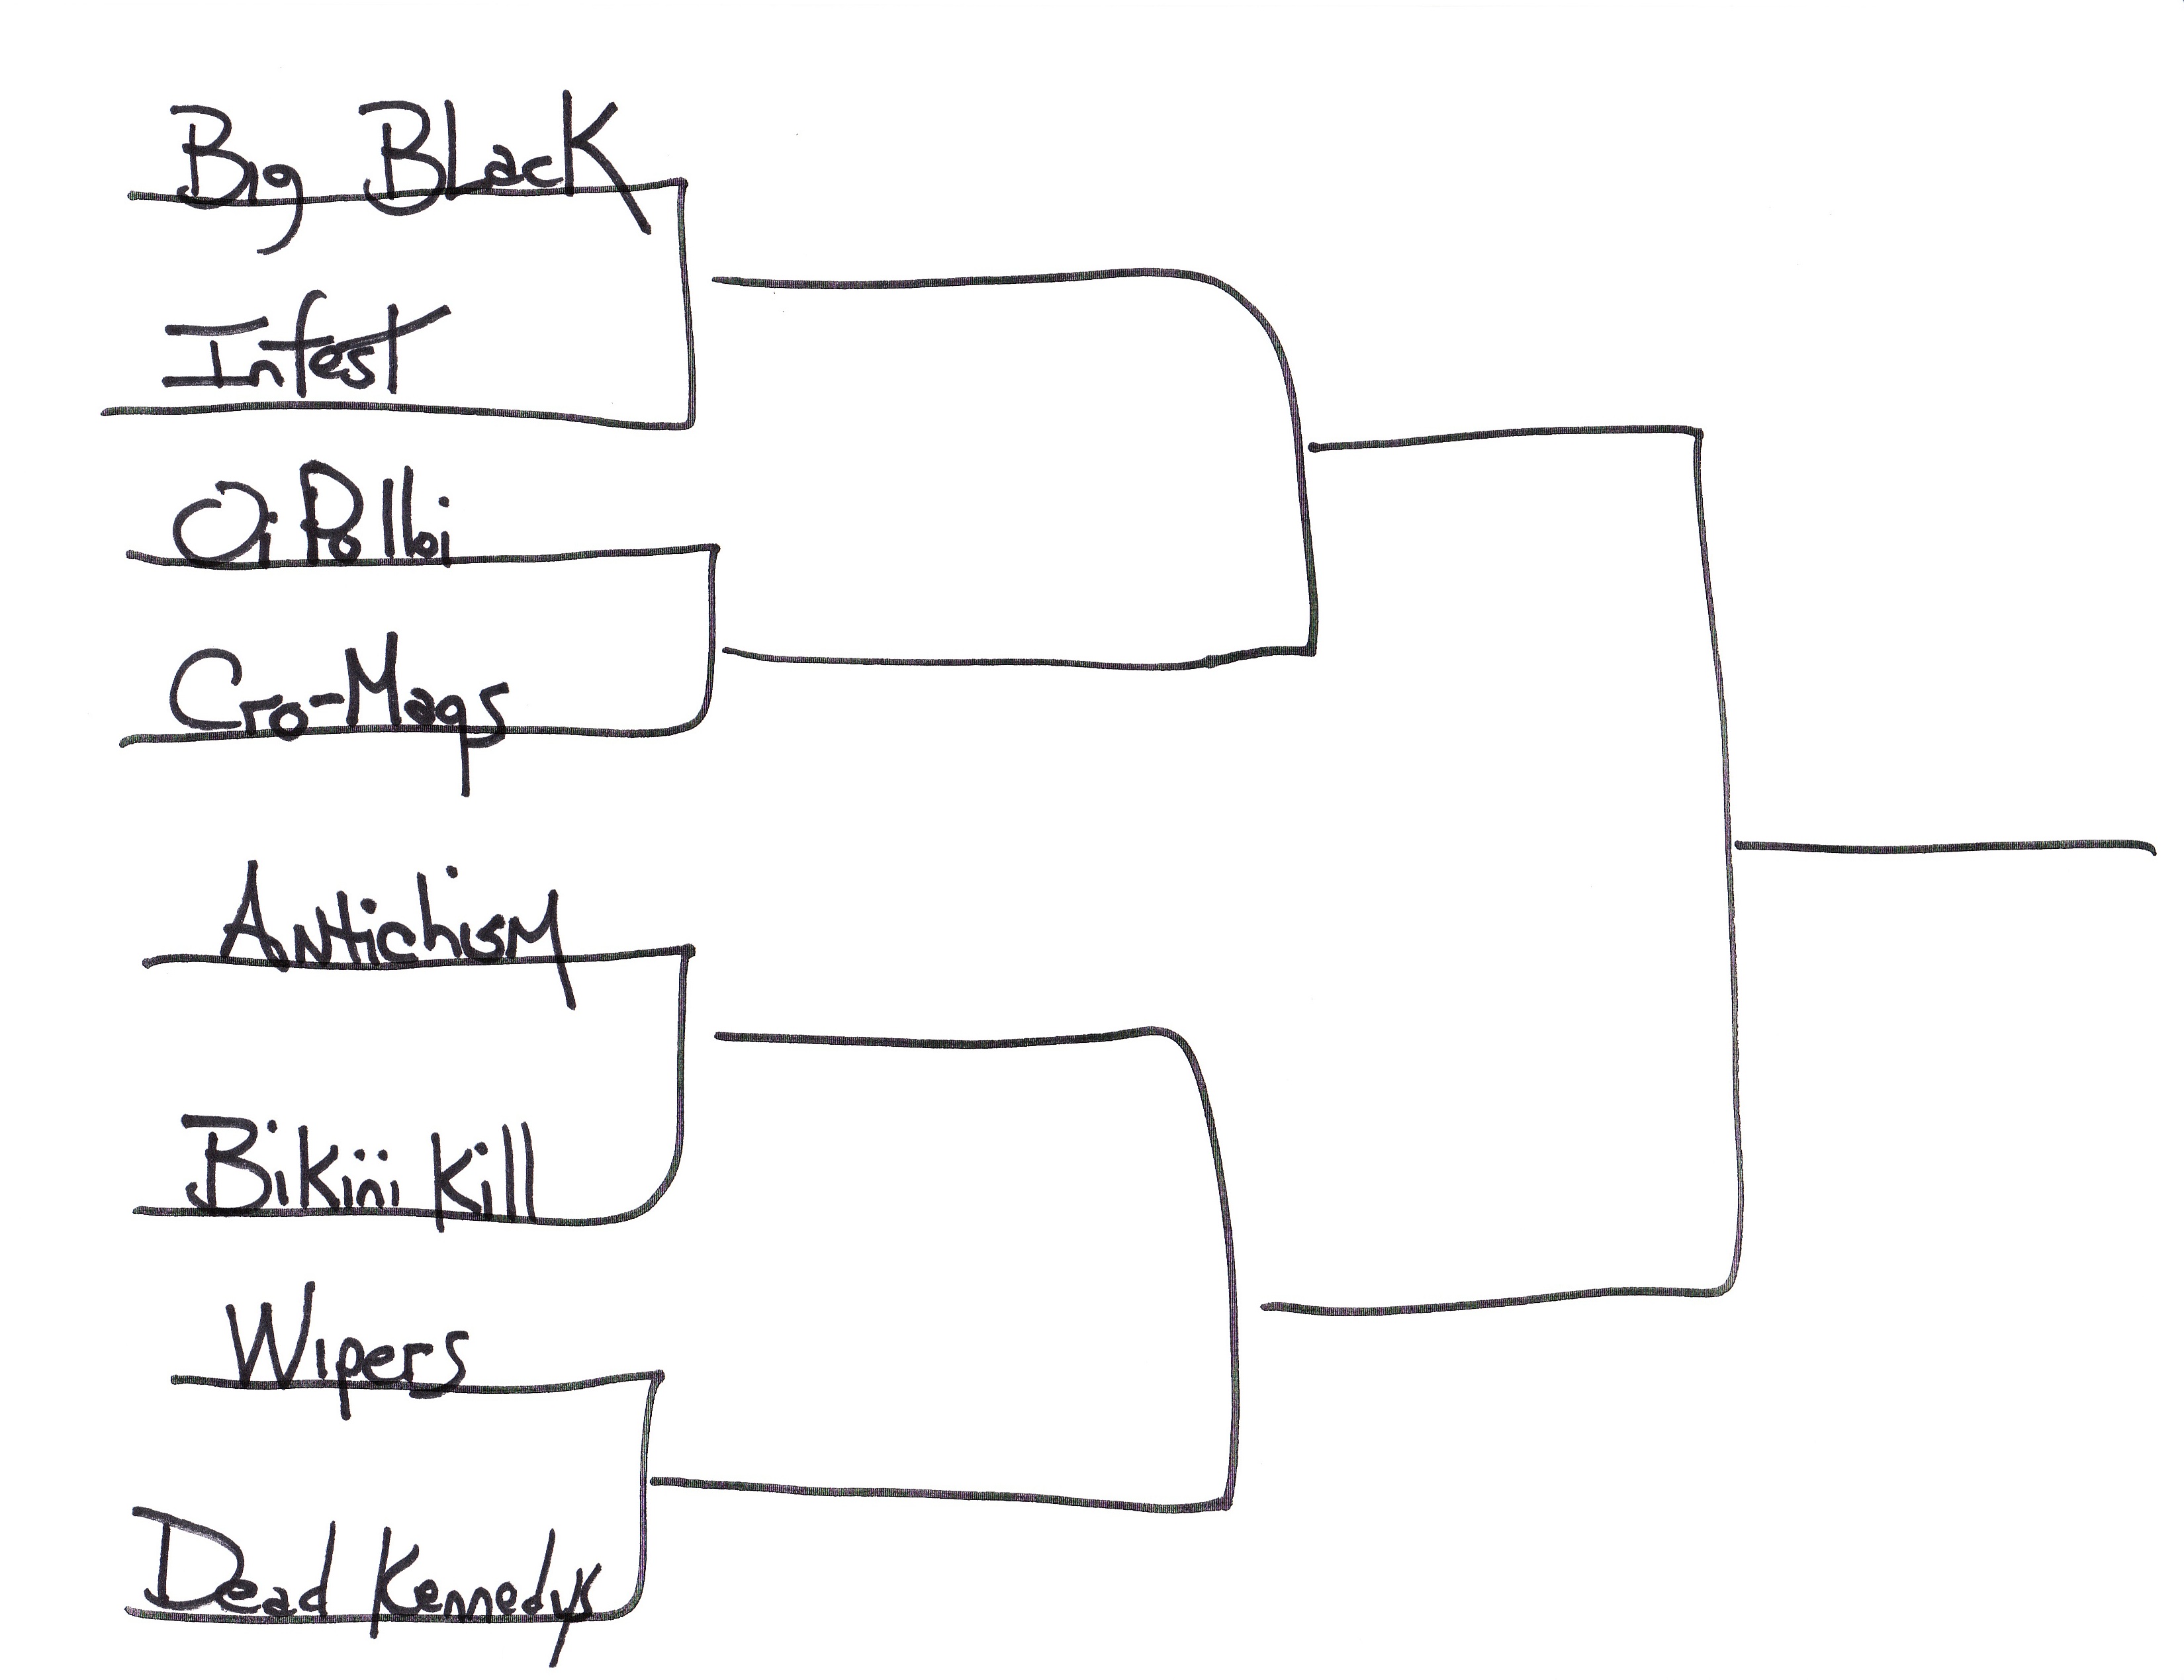 Big Black
Infest
Oi Polloi
Cro-Mags
Antichism
Bikini Kill
Wipers
Dead Kennedys